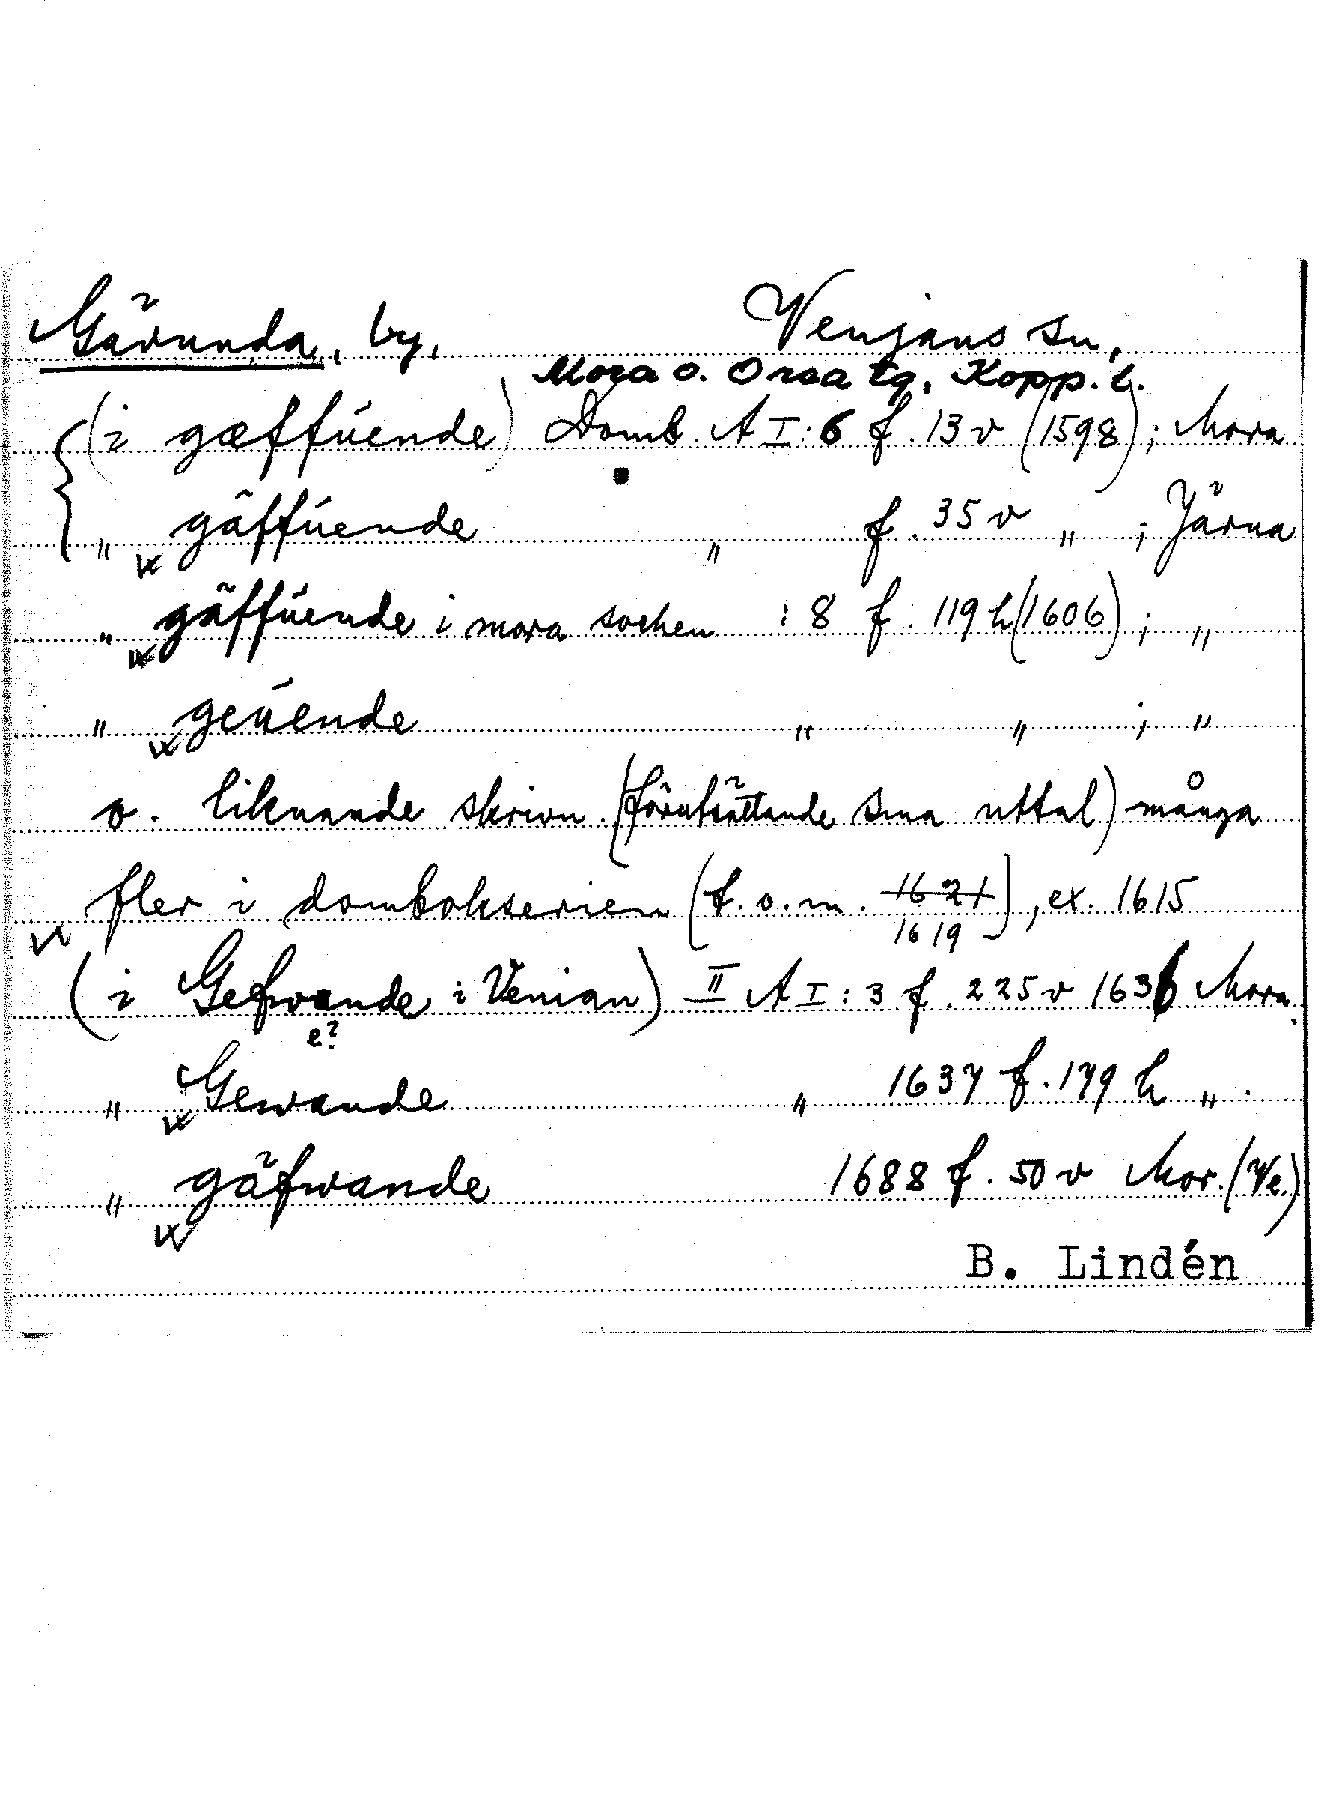 Gävunda, by, Venjans sn,
Mora o. Orsa tg, Kopp. l.
(i gæffúende) Domb. A I:6 f. 13 v (1598); Mora
" gäffúende " f. 35 v " ; Järna
" gäffúende i mora sochen : 8 f. 119 h (1606); "
" geúende " " ; "
o. liknande skrivn. (förutsättande sma uttal) många
fler i dombokserien (t. o. m. 1621 1619), ex. 1615
(i Gefwande i Venian) II A I:3 f. 225 v 1636 Mora.
e?
" Gewande " 1637 f. 179 h " .
" gäfwande 1688 f. 50 v Mor. (Ve.)
B. Lindén